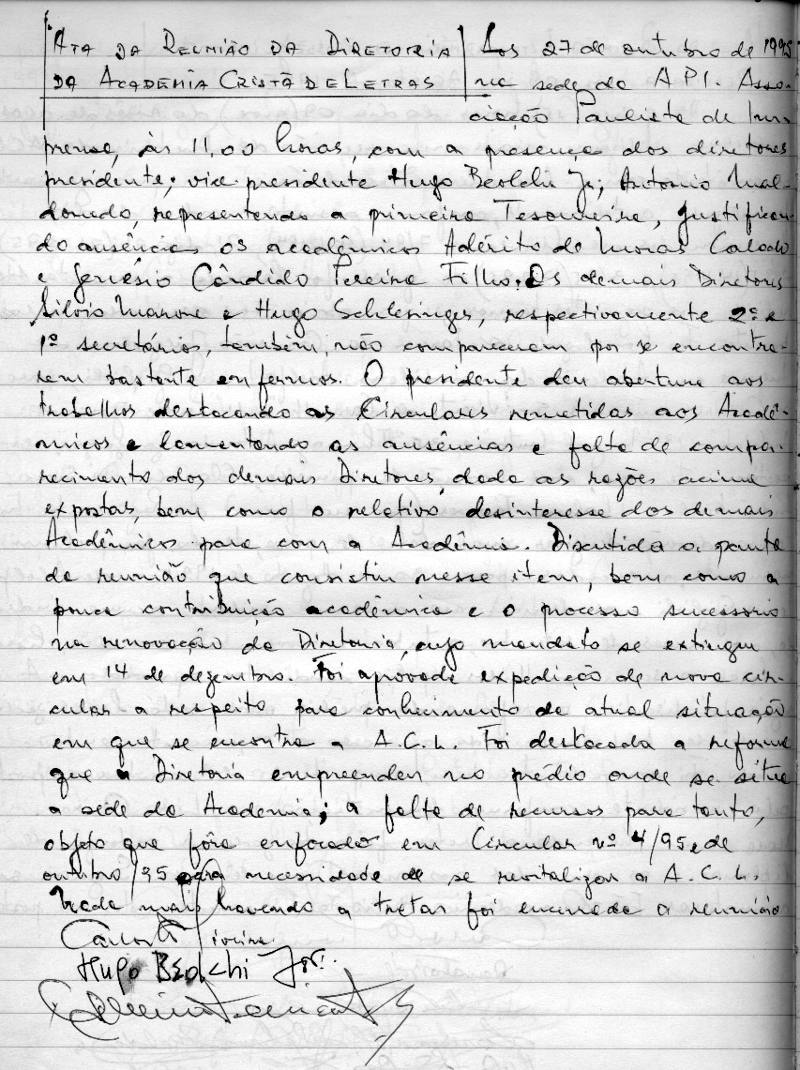 ATA DA REUNIÃO DA DIRETORIA
DA ACADEMIA CRISTÃ DE LETRAS
Aos 27 de outubro de 1995
na sede da API. Asso-
ciação Paulista de Im-
prensa, às 11,00 horas, com a presença dos diretores
presidente; vice presidente Hugo Beolchi Jr; Antonio Mal-
donado, representando a primeira Tesoureira, justifican-
do ausências os acadêmicos Adérito de Moras Calado
e Genésio Cândido Pereira Filho. Os demais Diretores
Silvio Marone e Hugo Schlesinger, respectivamente 2º e
1º secretários, também, não compareceram por se encontra-
rem bastante enfermos. O presidente deu abertura aos
trabalhos destacando as Circulares remetidas aos Acadê-
micos e lamentando as ausências e falta de compa-
recimento dos demais Diretores, dada as razões acima
expostas, bem como o relativo desinteresse dos demais
Acadêmicos para com a Acadêmia. Discutida a pauta
da reunião que consistiu nesse item, bem como a
pouca contribuição acadêmica e o processo sucessorio
na renovação da Diretoria, cujo mandato se extingue
em 14 de dezembro. Foi aprovada expedição de nova cir-
cular a respeito para conhecimento da atual situação
em que se encontra a A.C.L. Foi destacada a reforma
que a Diretoria empreendeu no prédio onde se situa
a sede da Academia; a falta de recursos para tanto,
objeto que fôra enfocado em Circular nº 4/95 de
outubro/95 necessidade de se revitalizar a A.C.L.
Nada mais havendo a tratar foi encerrada a reunião
Hugo Beolchi Jor.